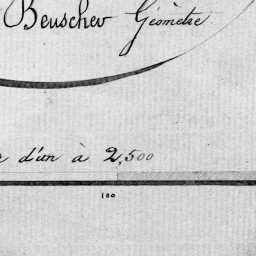 Beuscher Géomètre
d'un à 2,500
100